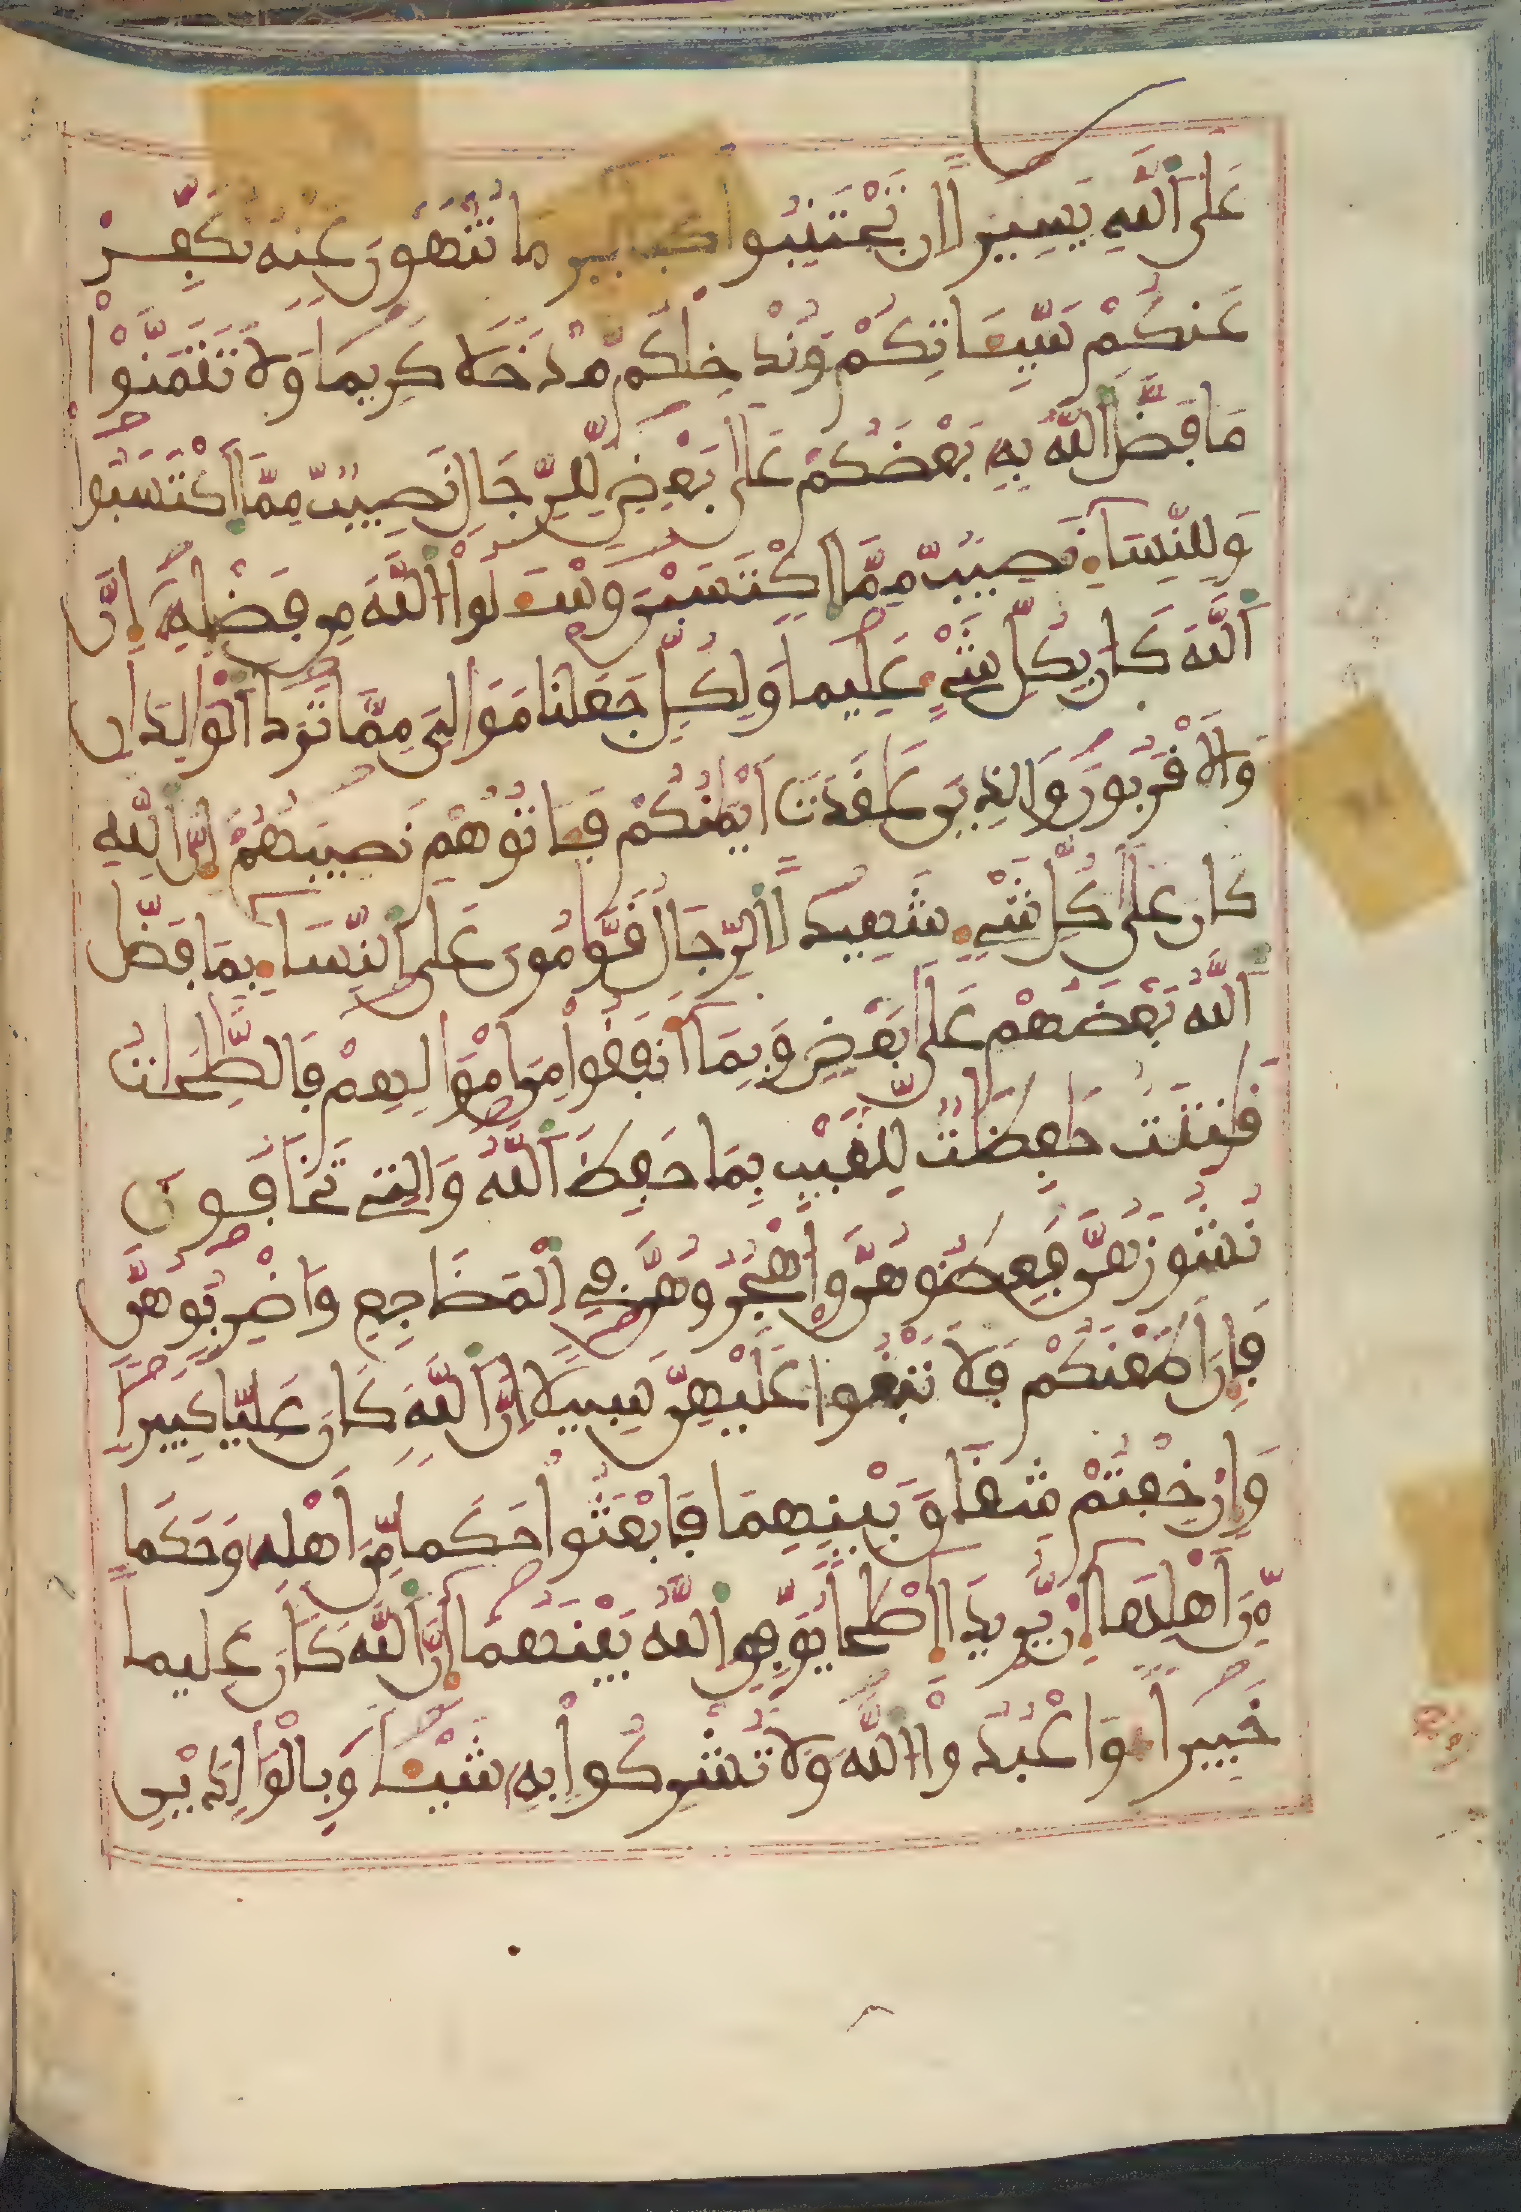 عَلَى اَللَّهِ يَسِيراًۖ اِن تَجْتَنِبُوا كَبَآئِرَ مَا تُنْهَوْنَ عَنْهُ نُكَفِّرْ
عَنكُمْ سَيِّـَٔاتِكُمْ وَنُدْخِلْكُم مَّدْخَلا كَرِيماً وَلَا تَتَمَنَّوْاْ
مَا فَضَّلَ اَللَّهُ بِهِ بَعْضَكُمْ عَلَى بَعْضٍ لِّلرِّجَالِ نَصِيبٌ مِّمَّا اَكْتَسَبُواْ
وَلِلنِّسَآءِ نَصِيبٌ مِّمَّا اَكْتَسَبْنَ وَسْـَٔلُواْ اُللَّهَ مِن فَضْلِهِ إِنَّ
اَللَّهَ كَانَ بِكُلِّ شَيْءٍ عَلِيما وَلِكُلٍّ جَعَلْنَا مَوَالِيَ مِمَّا تَرَكَ اَلْوَالِدَانِ
وَالَاقْرَبُونَ وَالذِينَ عَٰقَدَتَ اَيْمَٰنُكُمْ فَـَٔاتُوهُمْ نَصِيبَهُمْ إِنَّ اَللَّهَ
كَانَ عَلَى كُلِّ شَيْءٍ شَهِيداً اَلرِّجَالُ قَوَّامُونَ عَلَى اَلنِّسَآءِ بِمَا فَضَّلَ
اَللَّهُ بَعْضَهُمْ عَلَى بَعْضٍ وَبِمَآ أَنفَقُواْ مِنَ اَمْوَالِهِمْ فَالصَّٰلِحَٰتُ
قَٰنِتَٰتٌ حَٰفِظَٰتٌ لِّلْغَيْبِ بِمَا حَفِظَ اَللَّهُ وَالتِي تَخَافُونَ
نُشُوزَهُنَّ فَعِظُوهُنَّ وَاهْجُرُوهُنَّ فِي اِلْمَضَاجِعِ وَاضْرِبُوهُنَّ
فَإِنَ اَطَعْنَكُمْ فَلَا تَبْغُوا عَلَيْهِنَّ سَبِيلًا إِنَّ اَللَّهَ كَانَ عَلِيّا كَبِيراً
وَإِنْ خِفْتُمْ شِقَاقَ بَيْنِهِمَا فَابْعَثُوا حَكَما مِّنَ اَهْلِهِ وَحَكَما
مِّنَ اَهْلِهَآ إِنْ يُّرِيدَا إِصْلَٰحا يُوَفِّقِ اِللَّهُ بَيْنَهُمَآ إِنَّ اَللَّهَ كَانَ عَلِيما
خَبِيراً وَاعْبُدُواْ اُللَّهَ وَلَا تُشْرِكُواْ بِهِ شَيْـٔا وَبِالْوَالِدَيْنِ